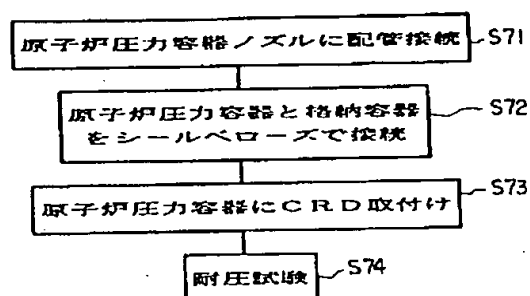 原子炉圧力容器ノズルに配管接続 S71
原子炉圧力容器と格納容器 S72
をシールベローズで接続
原子炉圧力容器にCRD取付け S73
耐圧試験 S74